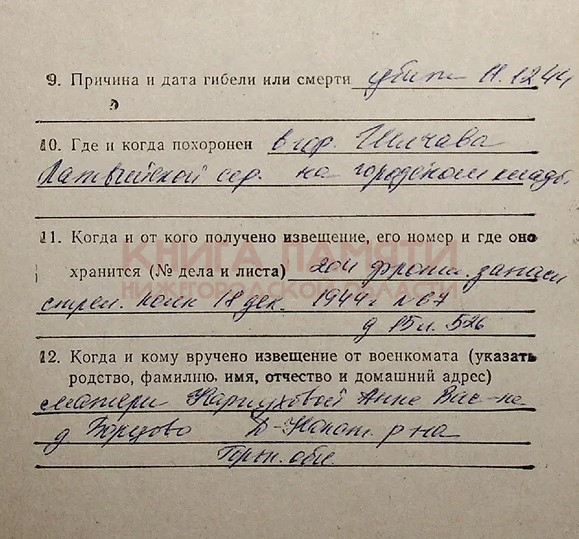 9. Причина и дата гибели или смерти убит 11.12.44
10. Где и когда похоронен в гор.
Латвийской ССР. на городском кладб.
11. Когда и от кого получено извещение, его номер и где оно
хранится (№ дела и листа) фронт. запасн
стрел. полк 18 дек. 1944г N 67
д 15 л. 526
КНИГА ПАМЯТИ
НИЖЕГОРОДСКОЙ ОБЛАСТИ
12. Когда и кому вручено извещение от военкомата (указать
родство, фамилию, имя, отчество и домашний адрес)
матери Карпуховой Анне Вас-не
д Борцово Д-Констат. р-на
Горьк. обл.